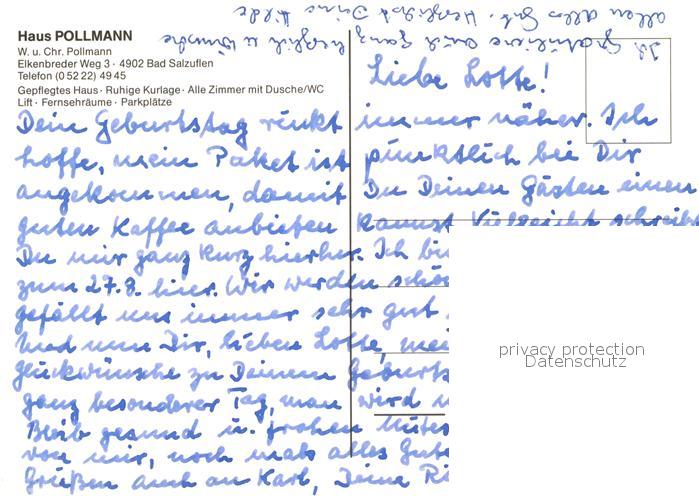 Haus POLLMANN
W. u. Chr. Pollmann
Elkenbreder Weg 3 · 4902 Bad Salzuflen
Telefon (0 52 22) 49 45
Gepflegtes Haus · Ruhige Kurlage · Alle Zimmer mit Dusche/WC
Lift · Fernsehräume · Parkplätze
Liebe Lotte!
Dein Geburtstag rückt immer näher. Ich
hoffe, mein Paket ist pünktlich bei Dir
angekommen, damit Du Deinen Gästen einen
guten Kaffee anbieten kannst. Vielleicht schreibst
Du mir ganz kurz hierher. Ich bin
zum 27.8. hier. Wir werden
gefällt uns immer sehr gut
Und nun Dir, lieben Lotte,
Glückwünsche zu Deinem
ganz besonderer Tag, man wird
Bleib gesund u. frohen
von mir, noch mals alles Gute
Grüßen auch an Karl, Deine
Ich gratuliere auch ganz herzlich u wünsche
allem alles Gute. Herzlichst Deine
privacy protection
Datenschutz